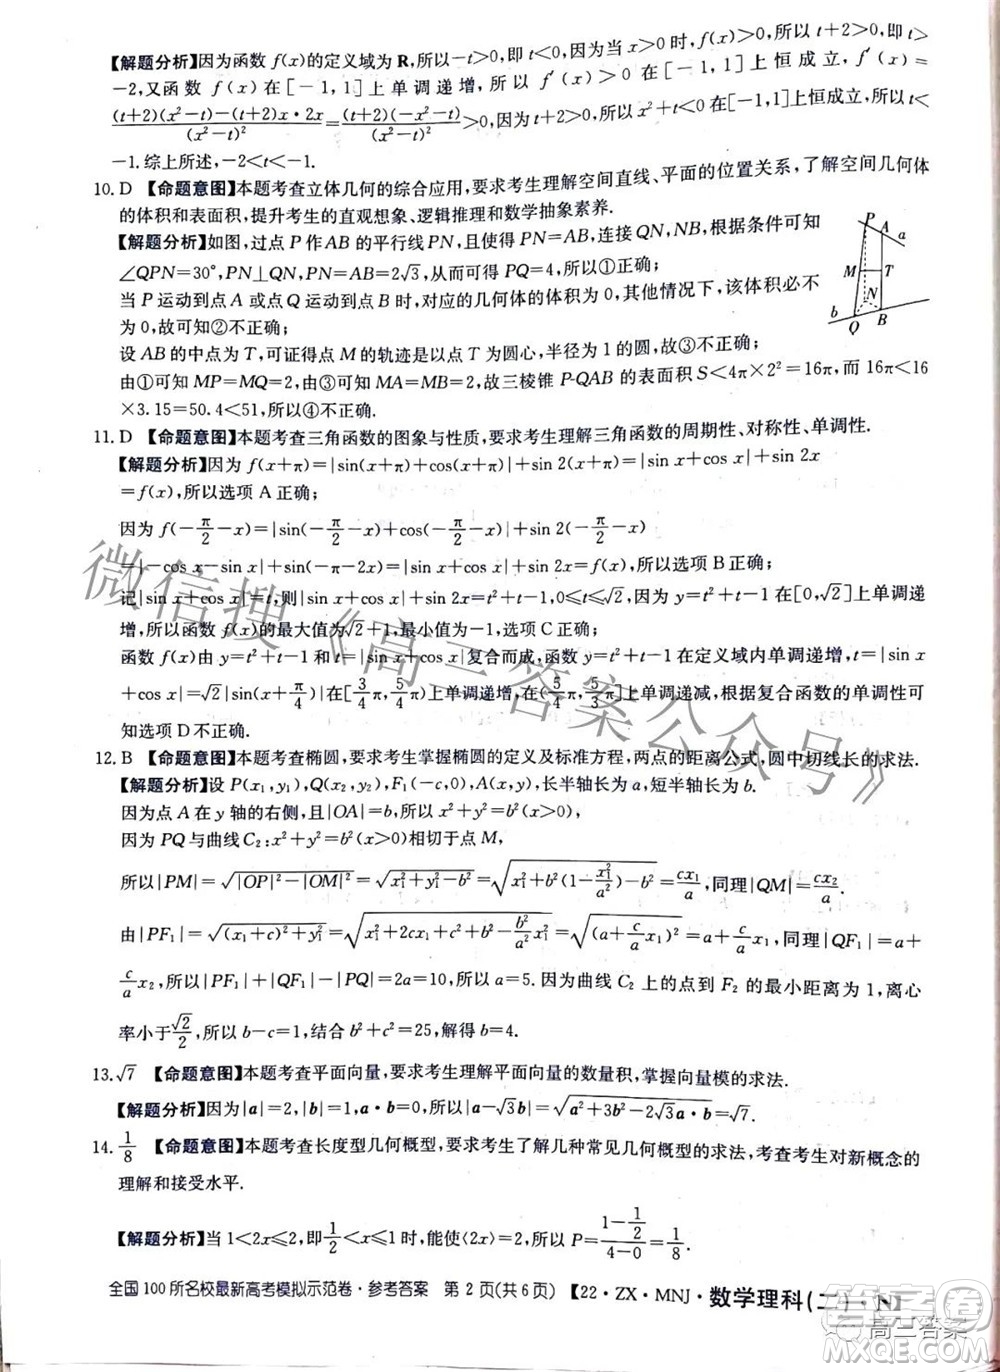 【解题分析】因为函数 f(x)的定义域为 R,所以-t>0,即 t<0,因为当 x>0 时,f(x)>0,所以 t+2>0,即 t>
-2,又函数 f(x)在[-1,1]上单调递增,所以 f′(x)>0 在[-1,1]上恒成立,f′(x)=
((t+2)(x²-t)-(t+2)x·2x)/(x²-t)²=(t+2)(-x²-t)/(x²-t)²,因为 t+2>0,所以 x²+t<0 在[-1,1]上恒成立,所以 t<
-1.综上所述,-2<t<-1.
10. D 【命题意图】本题考查立体几何的综合应用,要求考生理解空间直线、平面的位置关系,了解空间几何体
的体积和表面积,提升考生的直观想象、逻辑推理和数学抽象素养.
【解题分析】如图,过点 P 作 AB 的平行线 PN,且 PN=AB,连接 QN,NB,根据条件可知
∠QPN=30°,PN⊥QN,PN=AB=2√3,从而得 PQ=4,所以①正确;
当 P 运动到点 A 或点 Q 运动到点 B 时,对应的几何体的体积为 0,其他情况下,该体积必不
为 0,故可知②不正确;
设 AB 的中点为 T,可知点 M 的轨迹是以点 T 为圆心,半径为 1 的圆,故③正确;
由①可知 MP=MQ=2,由③可知 MA=MB=2,故三棱锥 P-QAB 的表面积 S<4π×2²=16π,而 16π<16
×3.15=50.4<51,所以④不正确.
P
A
a
M
T
N
b
Q
B
11. D 【命题意图】本题考查三角函数的图象与性质,要求考生理解三角函数的周期性、对称性、单调性.
【解题分析】因为 f(x+π)=|sin(x+π)+cos(x+π)|+sin 2(x+π)=|sin x+cos x|+sin 2x
=f(x),所以选项 A 正确;
因为 f(-π/2-x)=|sin(-π/2-x)+cos(-π/2-x)|+sin 2(-π/2-x)
=|-cos x-sin x|+sin(-π-2x)=|sin x+cos x|+sin 2x=f(x),所以选项 B 正确;
记|sin x+cos x|=t,则|sin x+cos x|+sin 2x=t²+t-1,0≤t≤√2,因为 y=t²+t-1 在[0,√2]上单调递
增,所以函数 f(x)的最大值为√2+1,最小值为-1,选项 C 正确;
函数 f(x)由 y=t²+t-1 和 t=|sin x+cos x|复合而成,函数 y=t²+t-1 在定义域内单调递增,t=|sin x+
cos x|=√2|sin(x+π/4)|在[3/4π,5/4π]上单调递增,在(5/4π,5/3π]上单调递减,根据复合函数的单调性可
知选项 D 不正确.
12. B 【命题意图】本题考查椭圆,要求考生掌握椭圆的定义及标准方程,两点的距离公式,圆中切线长的求法.
【解题分析】设 P(x₁,y₁),Q(x₂,y₂),F₁(-c,0),A(x,y),长半轴长为 a,短半轴长为 b.
因为点 A 在 y 轴的右侧,且|OA|=b,所以 x²+y²=b²(x>0).
因为 PQ 与曲线 C₂:x²+y²=b²(x>0)相切于点 M,
所以|PM|=√(|OP|²-|OM|²)=√(x₁²+y₁²-b²)=√(x₁²+b²(1-x₁²/a²)-b²)=cx₁/a,同理|QM|=cx₂/a.
由|PF₁|=√((x₁+c)²+y₁²)=√(x₁²+2cx₁+c²+b²-b²/a²x₁²)=√((a+c/a x₁)²)=a+c/a x₁,同理|QF₁|=a+
c/a x₂,所以|PF₁|+|QF₁|-|PQ|=2a=10,所以 a=5.因为曲线 C₂ 上的点到 F₂ 的最小距离为 1,离心
率小于√2/2,所以 b-c=1,结合 b²+c²=25,解得 b=4.
13. √7 【命题意图】本题考查平面向量,要求考生理解平面向量的数量积,掌握向量模的求法.
【解题分析】因为|a|=2,|b|=1,a·b=0,所以|a-√3b|=√(a²+3b²-2√3a·b)=√7.
14. 1/8 【命题意图】本题考查长度型几何概型,要求考生了解几种常见几何概型的求法,考查考生对新概念的
理解和接受水平.
【解题分析】当 1<2x≤2,即1/2<x≤1 时,[x]+[2x]=1,所以 P=(1-1/2)/(4-0)=1/8.
全国 100 所名校最新高考模拟示范卷·参考答案 第 2 页(共 6 页) 【22·ZX·MNJ·数学理科(二)·N】
微信搜《高三答案公众号》
答案圈
高三答案
MXQE.COM